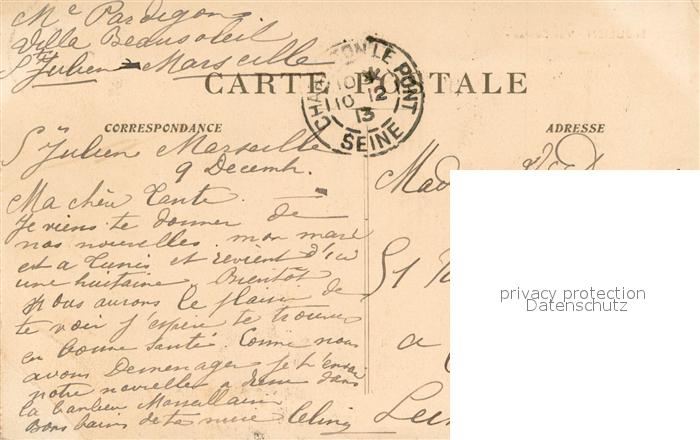 Me Pardigon
Villa Beausoleil
St Julien - Marseille
CARTE POSTALE
CHARENTON LE PONT
10 12
13
SEINE
CORRESPONDANCE
ADRESSE
St Julien Marseille
9 Decemb.
Ma chère Tante
Je viens te donner de
nos nouvelles. mon mari
est a Tunis et revient d'ici
une huitaine. Bientôt
nous aurons le plaisir de
te voir j'espère te trouver
en bonne santé. Comme nous
avons Demenager je t'envoi
notre nouvelles adresse dans
la banlieu Marseillaise
Bons baisers de ta niece Celina
Mad
St
a
privacy protection
Datenschutz